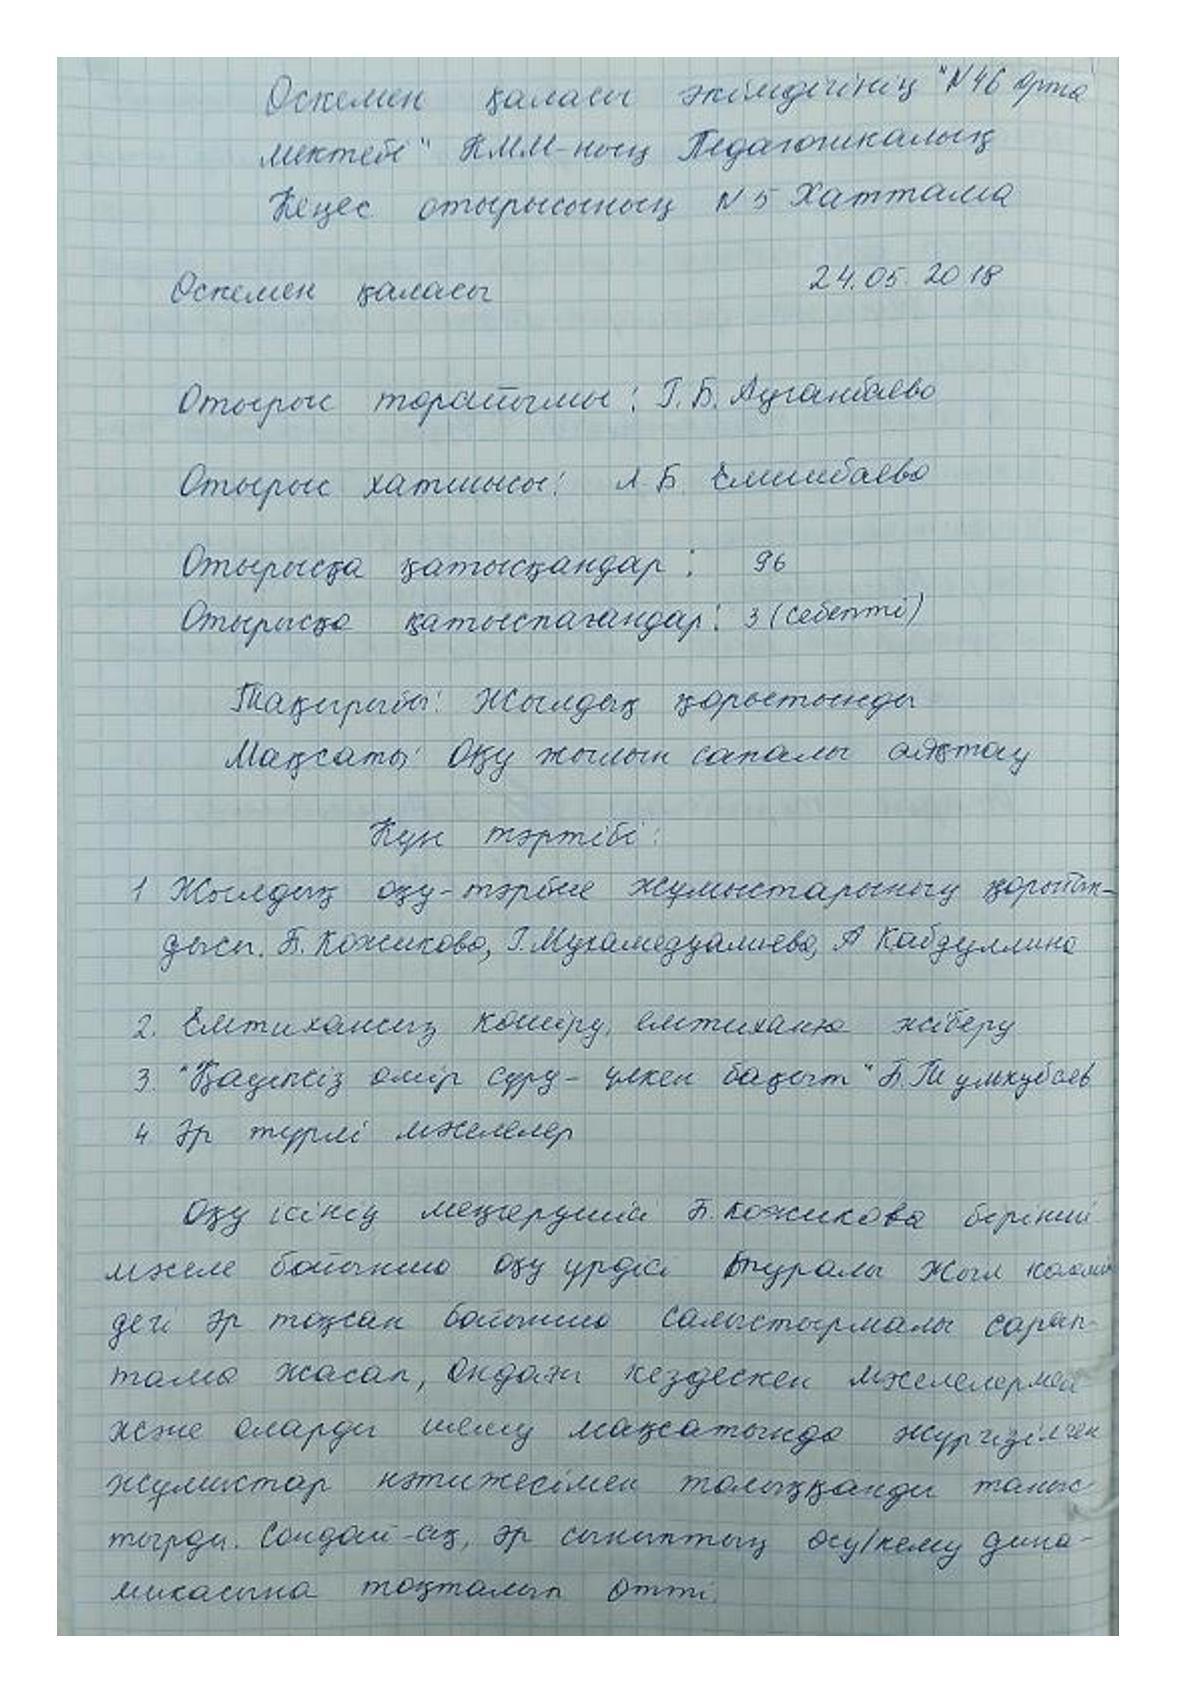 Өскемен қаласы әкімдігінің "N46 орта
мектебі" КММ-ның Педагогикалық
Кеңес отырысының N 5 Хаттама
Өскемен қаласы 24.05.2018
Отырыс төрайымы: Г.Б. Ауганбаева
Отырыс хатшысы: Л.Б. Емишбаева
Отырысқа қатысқандар: 96
Отырысқа қатыспағандар: 3 (себепті)
Тақырыбы: Жылдық қорытынды
Мақсаты: Оқу жылын сапалы аяқтау
Күн тәртібі:
1 Жылдық оқу-тәрбие жұмыстарының қорытын-
дысы. Б. Кожикова, Г. Мухамедуалиева, А Кабдуллина
2. Емтихансыз көшіру, емтиханға жіберу
3. "Қауіпсіз өмір сүру - үлкен бақыт" Б. Тумкубаев
4 Әр түрлі мәселелер
Оқу ісінің меңгерушісі Б. Кожикова бірінші
мәселе бойынша оқу үрдісі туралы жыл көлемін
дегі әр тоқсан бойынша салыстырмалы сарап-
тама жасап, ондағы кездескен мәселелермен
және оларды шешу мақсатында жүргізілген
жұмыстар нәтижесімен толыққанды таныс-
тырды. Сондай-ақ, әр сыныптың өсу/кему дина-
микасына тоқталып өтті.